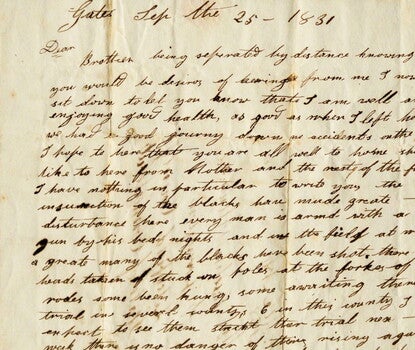 Gates Sep the 25 - 1831
Dear
Brother being separated by distance knowing
you would be desires of hearing from me I now
sit down to let you know that I am well a
enjoying good health, as good as when I left ho
we had a good journy down no accidents on the
I hope to here that you are all well to home sh
like to here from Mother and the rest of the f
I have nothing in particular to write you the
insurection of the blacks have made great
disturbance here every man is armd with a
gun by his bed nights and in the field at w
a great many of the blacks have been shot there
heads taken of stuck on poles at the forkes of
rodes some been hung, some awaiting there
trial in several countys, 6 in this county I
expect to see them strecht ther trial nex
week there is no danger of there rising aga